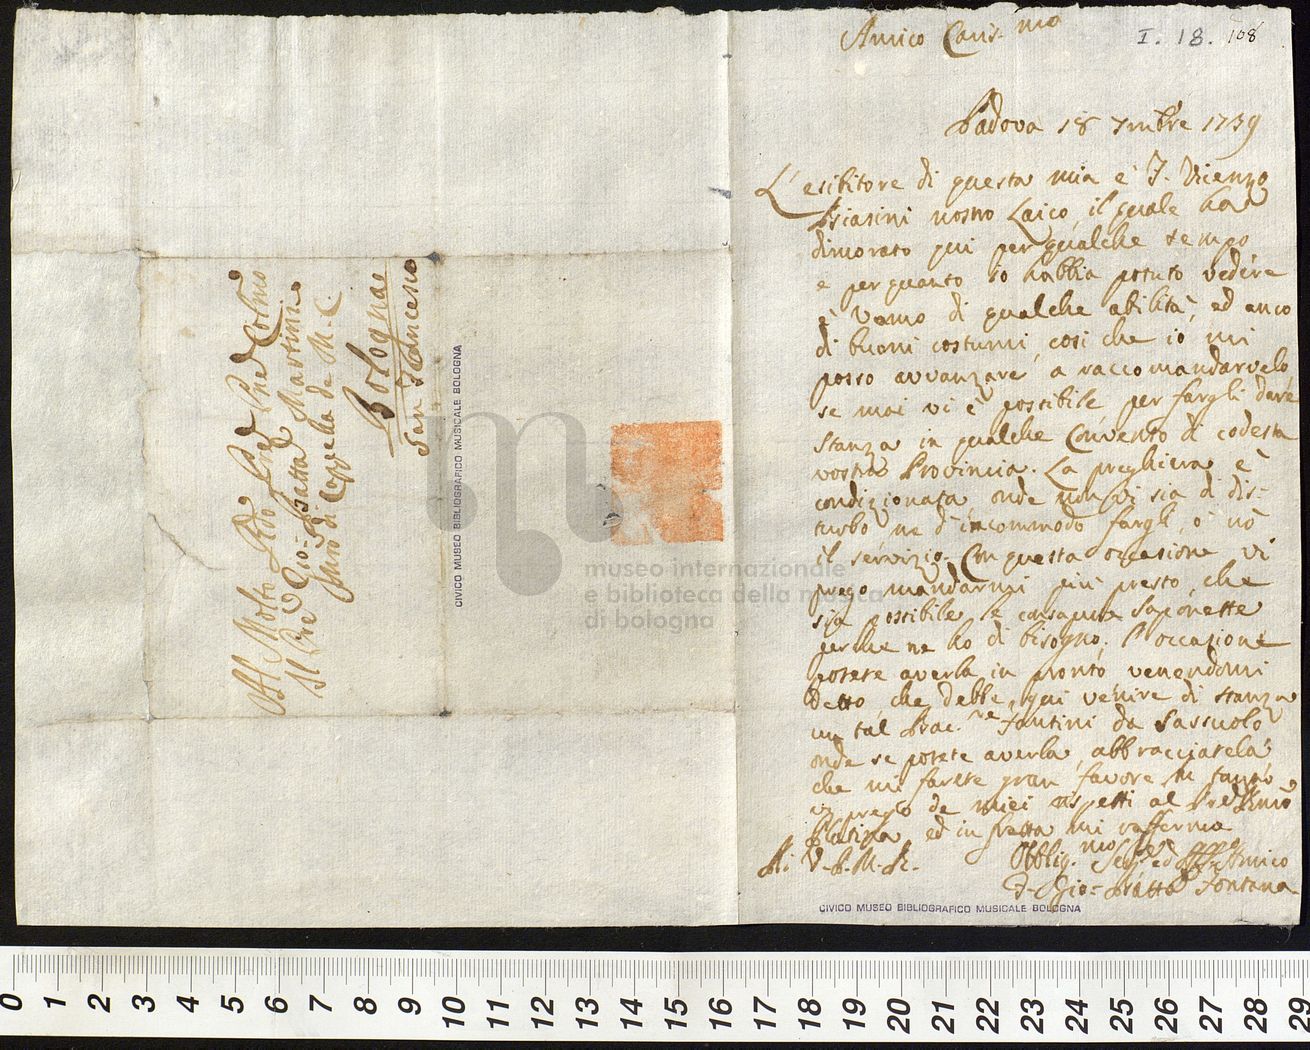 Al Molto Rdo Pred Pne Colmo
Il Pre Gio: Batta Martini
Mro di Cappella de M. C.
Bolognae
San Francesco
CIVICO MUSEO BIBLIOGRAFICO MUSICALE BOLOGNA
museo internazionale
e biblioteca della musica
di bologna
Amico Caris.mo
I. 18. 108
Padova 18 7mbre 1739
L'esibitore di questa mia è F. Vicenzo
nostro Laico, il quale ha
dimorato qui per qualche tempo
e per quanto io habbia potuto vedere
è Vomo di qualche abilità, ed anco
di buoni costumi, così che io mi
posso avvanzare a raccomandarvelo
se mai vi è possibile per fargli dare
stanza in qualche Convento di codesta
vostra Provincia. La preghiera è
condizionata, onde non vi sia di dis-
turbo, ne d'incommodo fargli, ò nò
il servizio. Con questa occasione vi
prego mandarmi più presto, che
sia possibile le Saponette
perche ne ho di bisogno. L'occazione
potete averla in pronto, venendomi
detto, che debbe qui venire di stanza
un tal Bac.re Fantini da Sassuolo
onde se potete averla, abbracciatela
che mi farete gran favore. In tanto
vi prego de miei rispetti al Pre
Platina, ed in fretta mi raffermo
Di V. P. M. R.
Obblig.mo Amico
F. Gio: Batta Fontana
CIVICO MUSEO BIBLIOGRAFICO MUSICALE BOLOGNA
0 1 2 3 4 5 6 7 8 9 10 11 12 13 14 15 16 17 18 19 20 21 22 23 24 25 26 27 28 29